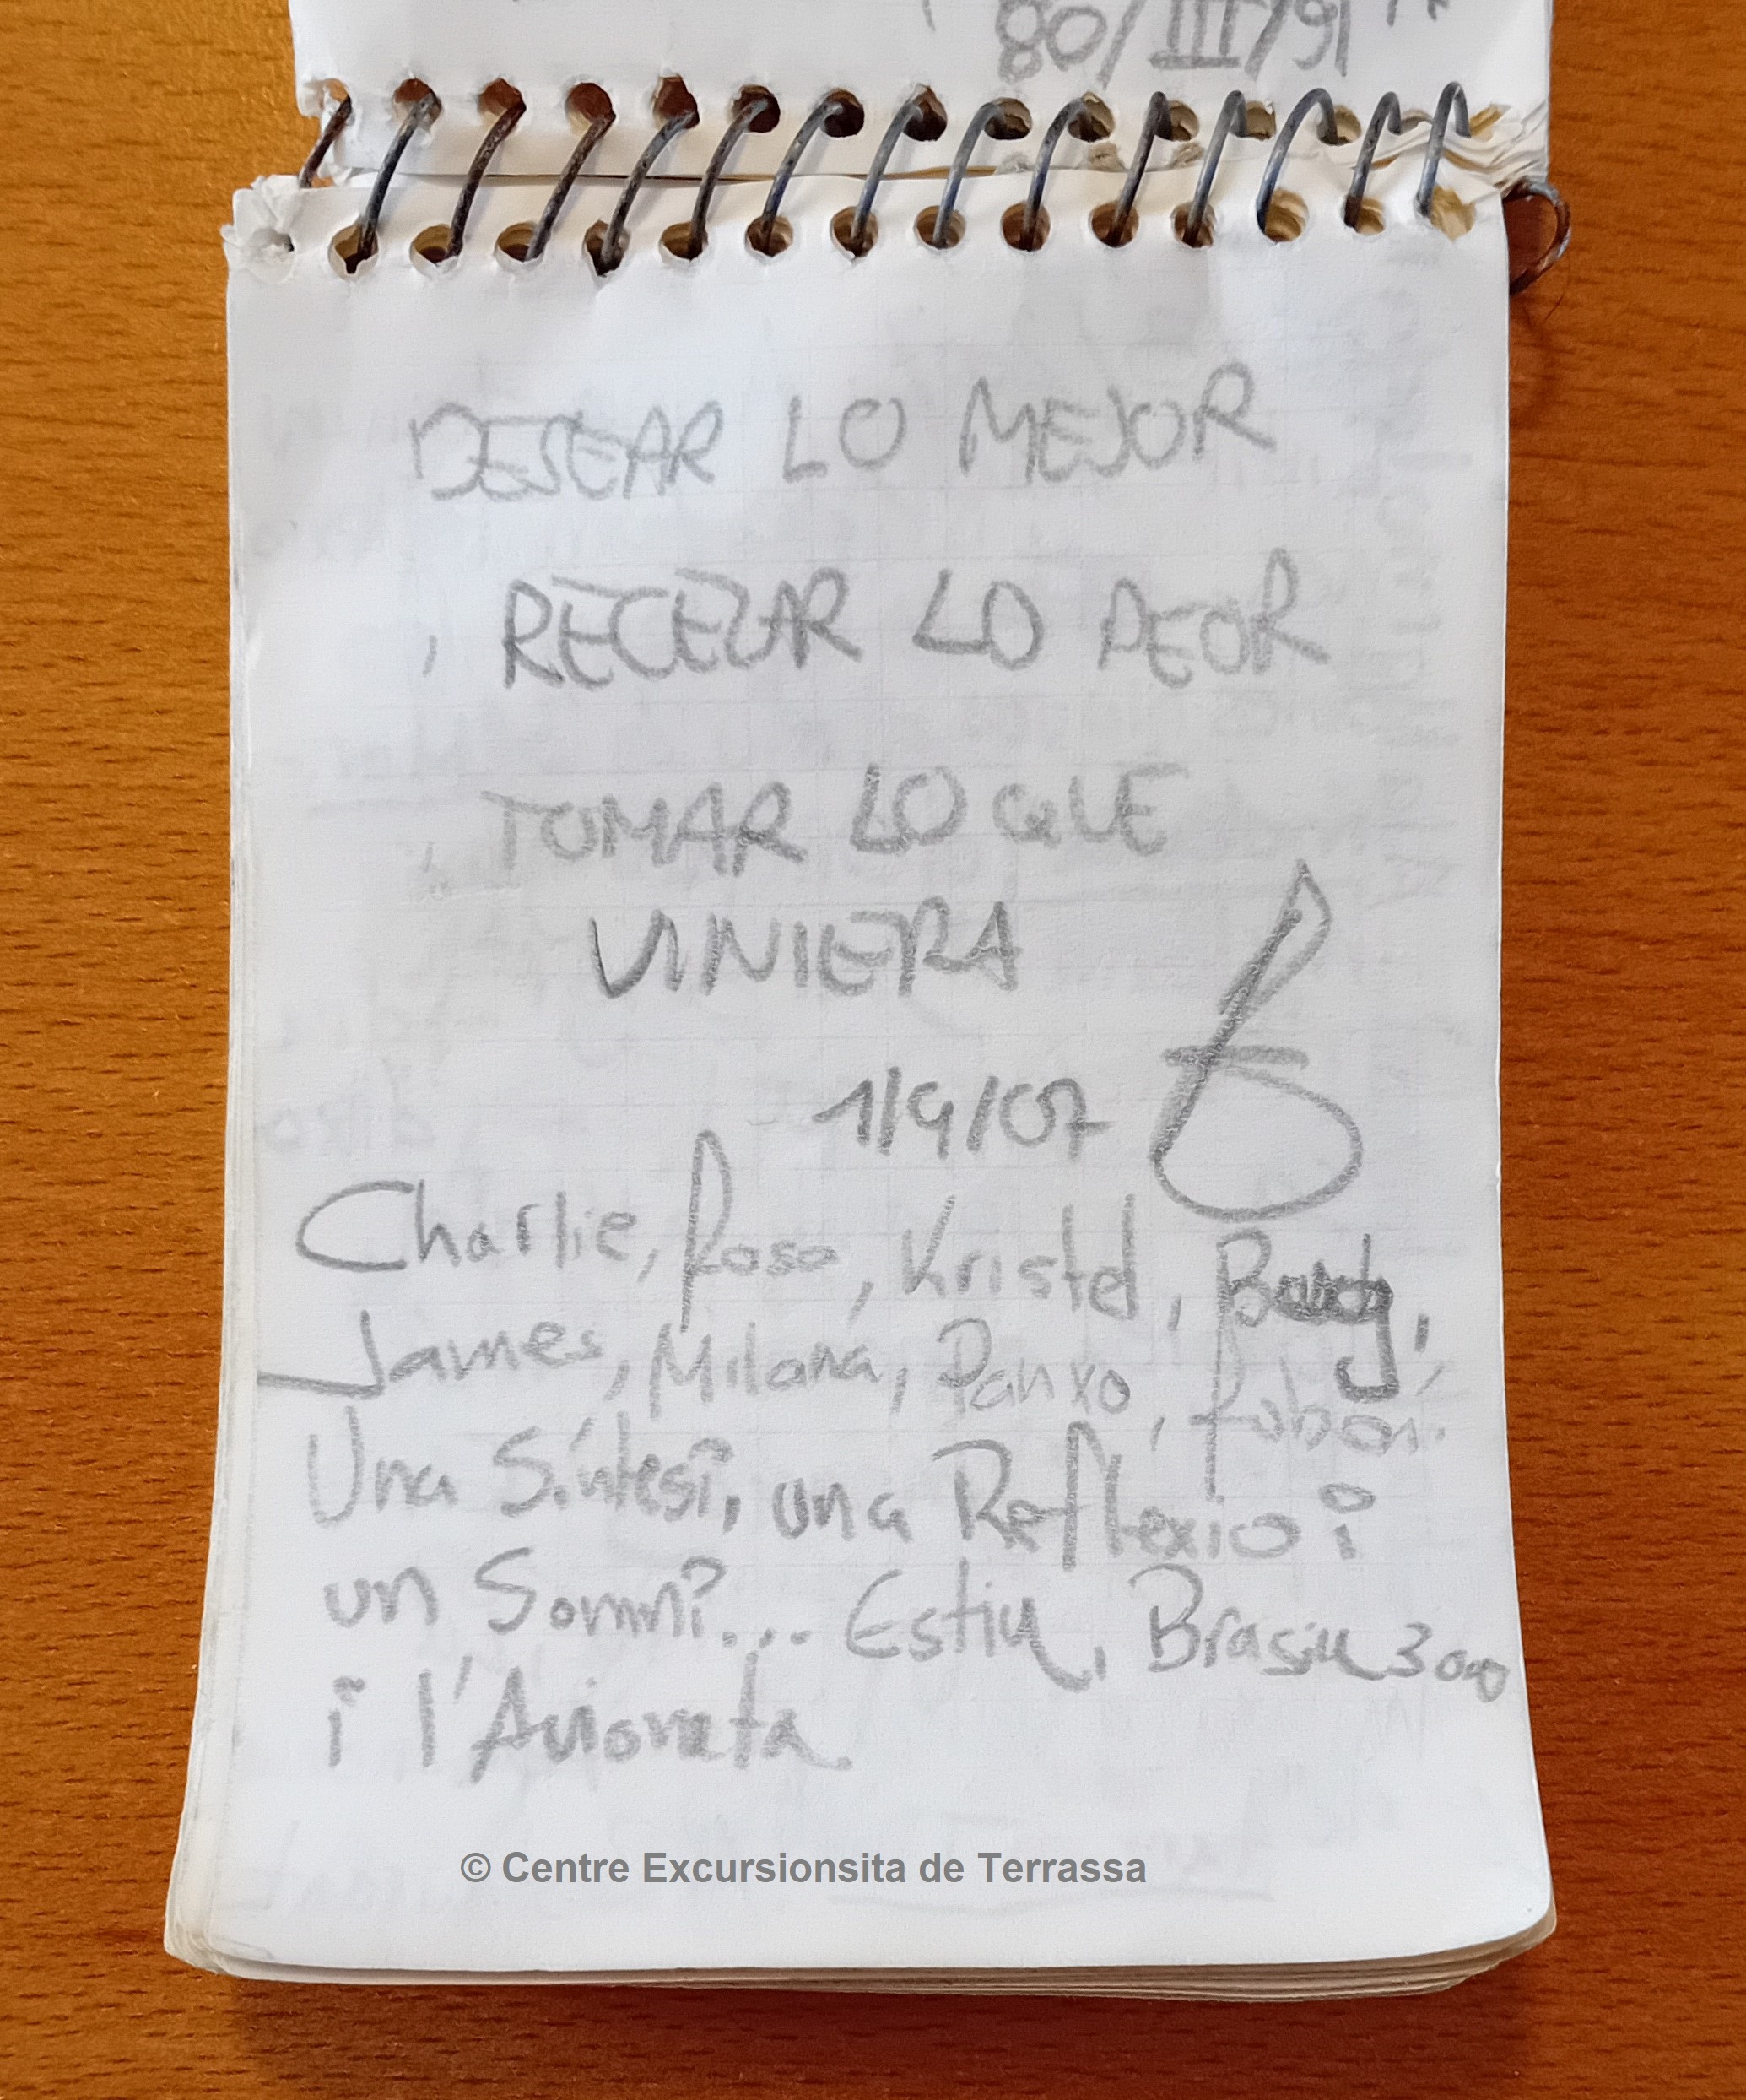 16/III/08
DESEAR LO MEJOR
RECELAR LO PEOR
TOMAR LO QUE
VINIERA
1/9/07
Charlie, Rosa, Kristel,
James, Milana, Panxo,
Una Síntesi, una Reflexio i
un Somni... Estiu, Brasiu 3000
i l'Avioneta.
© Centre Excursionsita de Terrassa